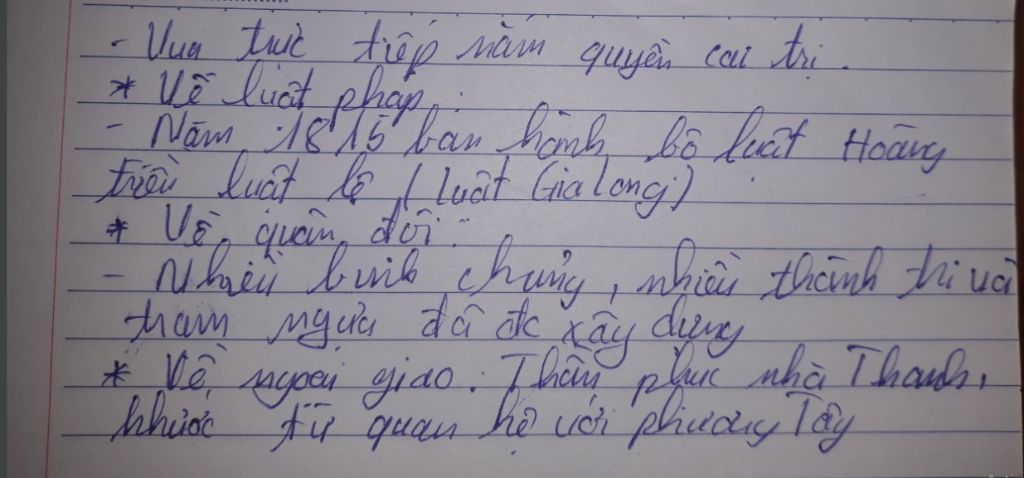 - Vua trực tiếp nắm quyền cai trị.
* Về luật pháp:
- Năm 1815 ban hành bộ luật Hoàng
triều luật lệ (luật Gia Long)
* Về quân đội:
- Nhiều binh chủng, nhiều thành trì và
trạm ngựa đã đc xây dựng
* Về ngoại giao: Thần phục nhà Thanh,
khước từ quan hệ với phương Tây